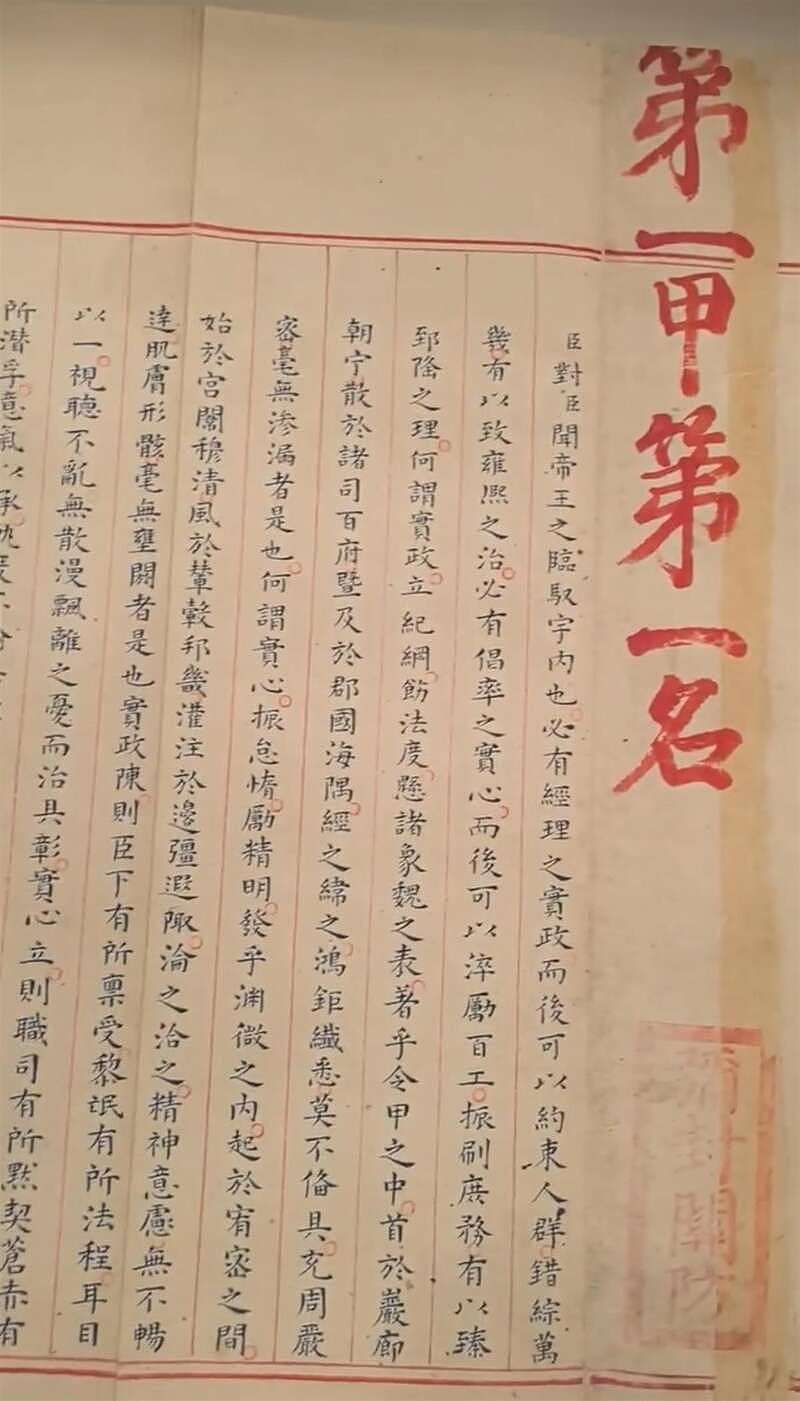 第一甲第一名
臣對臣聞帝王之臨馭宇内也必有經理之實政而後可以約束人群錯綜萬
幾有以致雍熙之治必有倡率之實心而後可以淬勵百工振刷庶務有以臻
郅隆之理何謂實政立紀綱飭法度懸諸象魏之表著乎令甲之中首於巖廊
朝宁散於諸司百府暨及於郡國海隅經之緯之鴻鉅纖悉莫不偹具充周嚴
宻毫無滲漏者是也何謂實心振怠惰勵精明發乎渊微之内起於宥宻之間
始於宫闈穆清風於輦轂邦畿灌注於邊彊遐陬淪之洽之精神意慮無不暢
達肌膚形骸毫無壅閼者是也實政陳則臣下有所禀受黎氓有所法程耳目
以一視聽不亂無散漫飄離之憂而治具彰實心立則職司有所默契蒼赤有
所潜孚意氣以承
關防